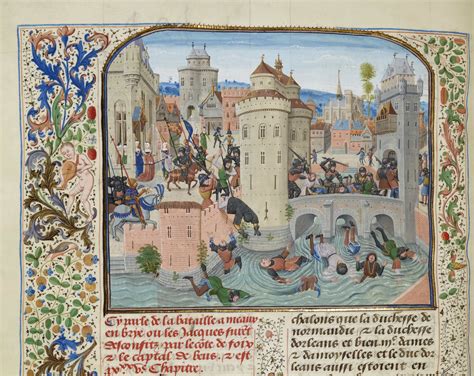 Cy parle de la bataille a meaux
en brye ou les Jacques furēt
desconfis par le côte de foix
& le captal de beus & est
Chapitre.
chalons que la duchesse de
normandie & la duchesse
dorleans et bien .iiic. dames
& damoyselles et le duc dor
leans aussi estoient en